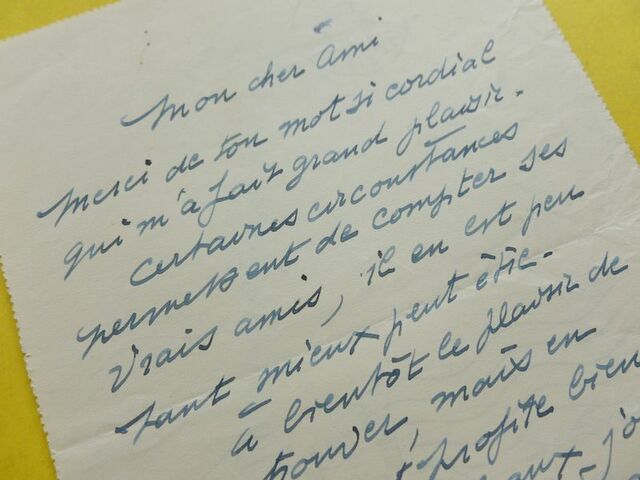 Mon cher Ami
Merci de ton mot si cordial
qui m'a fait grand plaisir.
Certaines circonstances
permettent de compter ses
Vrais amis, il en est peu
tant mieux peut être.
à bientôt le plaisir de
trouver, mais en
profite bien